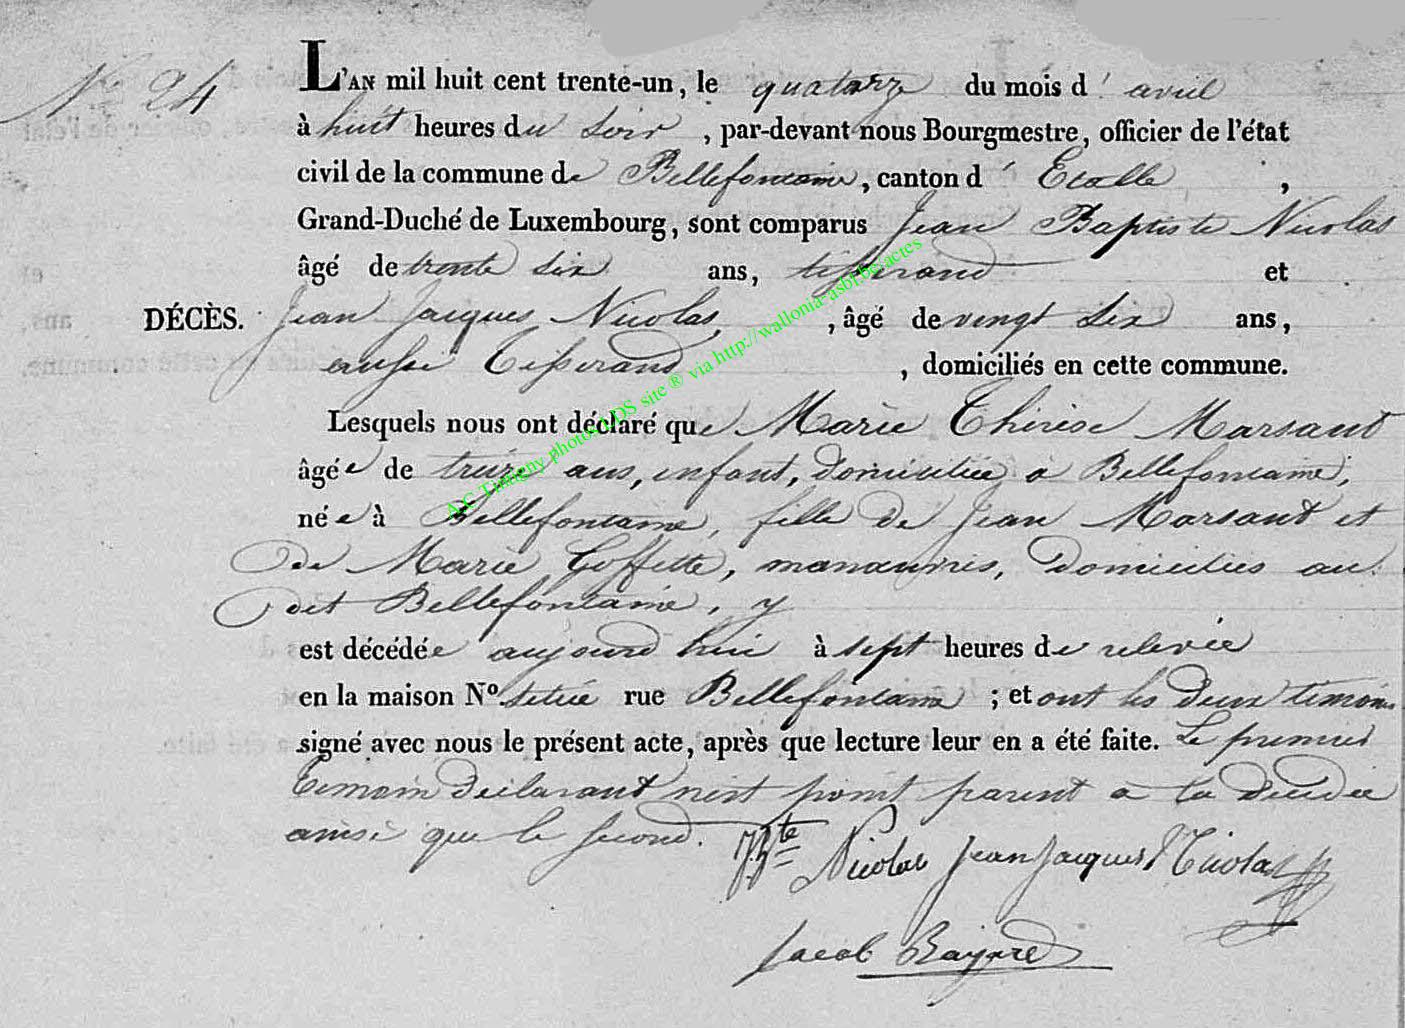 N° 24
L'AN mil huit cent trente-un, le quatorze du mois d' avril
à huit heures du soir, par-devant nous Bourgmestre, officier de l'état
civil de la commune de Bellefontaine, canton d' Etalle,
Grand-Duché de Luxembourg, sont comparus Jean Baptiste Nicolas
âgé de trente six ans, tisserand et
DÉCÈS. Jean Jacques Nicolas, , âgé de vingt six ans,
aussi Tisserand , domiciliés en cette commune.
Lesquels nous ont déclaré que Marie Thérèse Marsaut
âgée de treize ans, enfant, domiciliée à Bellefontaine,
née à Bellefontaine, fille de Jean Marsaut et
de Marie Goffette, manœuvres, domiciliés au
dit Bellefontaine, y
est décédée aujourd'hui à sept heures de relevée
en la maison N° située rue Bellefontaine ; et ont les deux témoins
signé avec nous le présent acte, après que lecture leur en a été faite. Le premier
témoin déclarant n'est point parent à la décédée
ainsi que le second. J Bte Nicolas Jean Jacques Nicolas
Jacob
A.C Tintigny photos LDS site ® via http://wallonia-asbl.be/actes